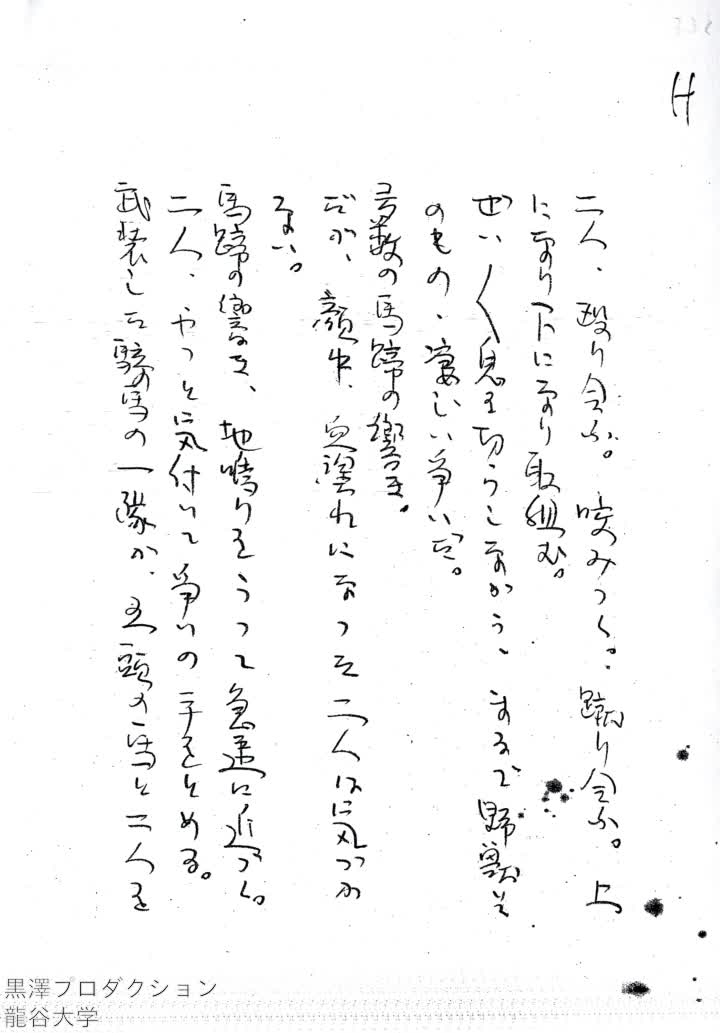 H
二人、殴り合ふ。咬みつく。蹴り合ふ。上
になり下になり取組む。
ぜい〱息を切らしながら、まるで野獣そ
のもの、凄じい争いだ。
多数の馬蹄の響き。
だが、顔中、血濡れになった二人は気づか
ない。
馬蹄の響き、地鳴りをうって急速に近づく。
二人、やっと気付いて争いの手をとめる。
武装した騎馬の一隊が、五頭の馬と二人を
黒澤プロダクション
龍谷大学